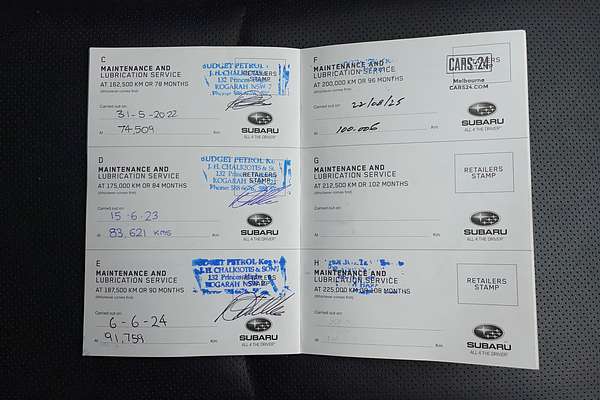 C
MAINTENANCE AND
LUBRICATION SERVICE
AT 162,500 KM OR 78 MONTHS
(Whichever comes first)
BUDGET PETROL
J. H. CHALKIOTIS
132 Princes
KOGARAH NSW
STAMP
Carried out on:
31-5-2022
At 74,509 Km
SUBARU
ALL 4 THE DRIVER
D
MAINTENANCE AND
LUBRICATION SERVICE
AT 175,000 KM OR 84 MONTHS
(Whichever comes first)
BUDGET PETROL
J. H. CHALKIOTIS &
132 Princes
KOGARAH
STAMP
Carried out on:
15-6-23
At 83,621 KMS
SUBARU
ALL 4 THE DRIVER
E
MAINTENANCE AND
LUBRICATION SERVICE
AT 187,500 KM OR 90 MONTHS
(Whichever comes first)
BUDGET PETROL
J. H. CHALKIOTIS & SONS
132 Princes
KOGARAH NSW
Carried out on:
6-6-24
At 91,759 Km
SUBARU
ALL 4 THE DRIVER
F
MAINTENANCE AND
LUBRICATION SERVICE
AT 200,000 KM OR 96 MONTHS
(Whichever comes first)
CARS24
Melbourne
CARS24.COM
Carried out on: 22/08/25
At 100.006 Km
SUBARU
ALL 4 THE DRIVER
G
MAINTENANCE AND
LUBRICATION SERVICE
AT 212,500 KM OR 102 MONTHS
(Whichever comes first)
RETAILERS
STAMP
Carried out on:
At Km
SUBARU
ALL 4 THE DRIVER
H
MAINTENANCE AND
LUBRICATION SERVICE
AT 225,000 KM OR 108 MONTHS
(Whichever comes first)
RETAILERS
STAMP
Carried out on:
At Km
SUBARU
ALL 4 THE DRIVER